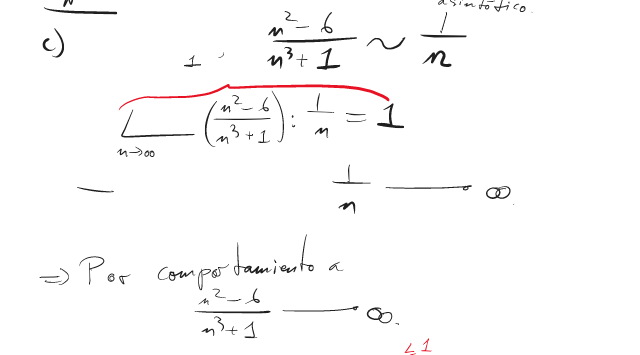 n
asintótico.
c) 1 . n² - 6 / n³ + 1 ~ 1/n
L n→∞ (n² - 6 / n³ + 1) : 1/n = 1
— 1/n — ∞
⇒ Por comportamiento a
n² - 6 / n³ + 1 — ∞.
≤ 1